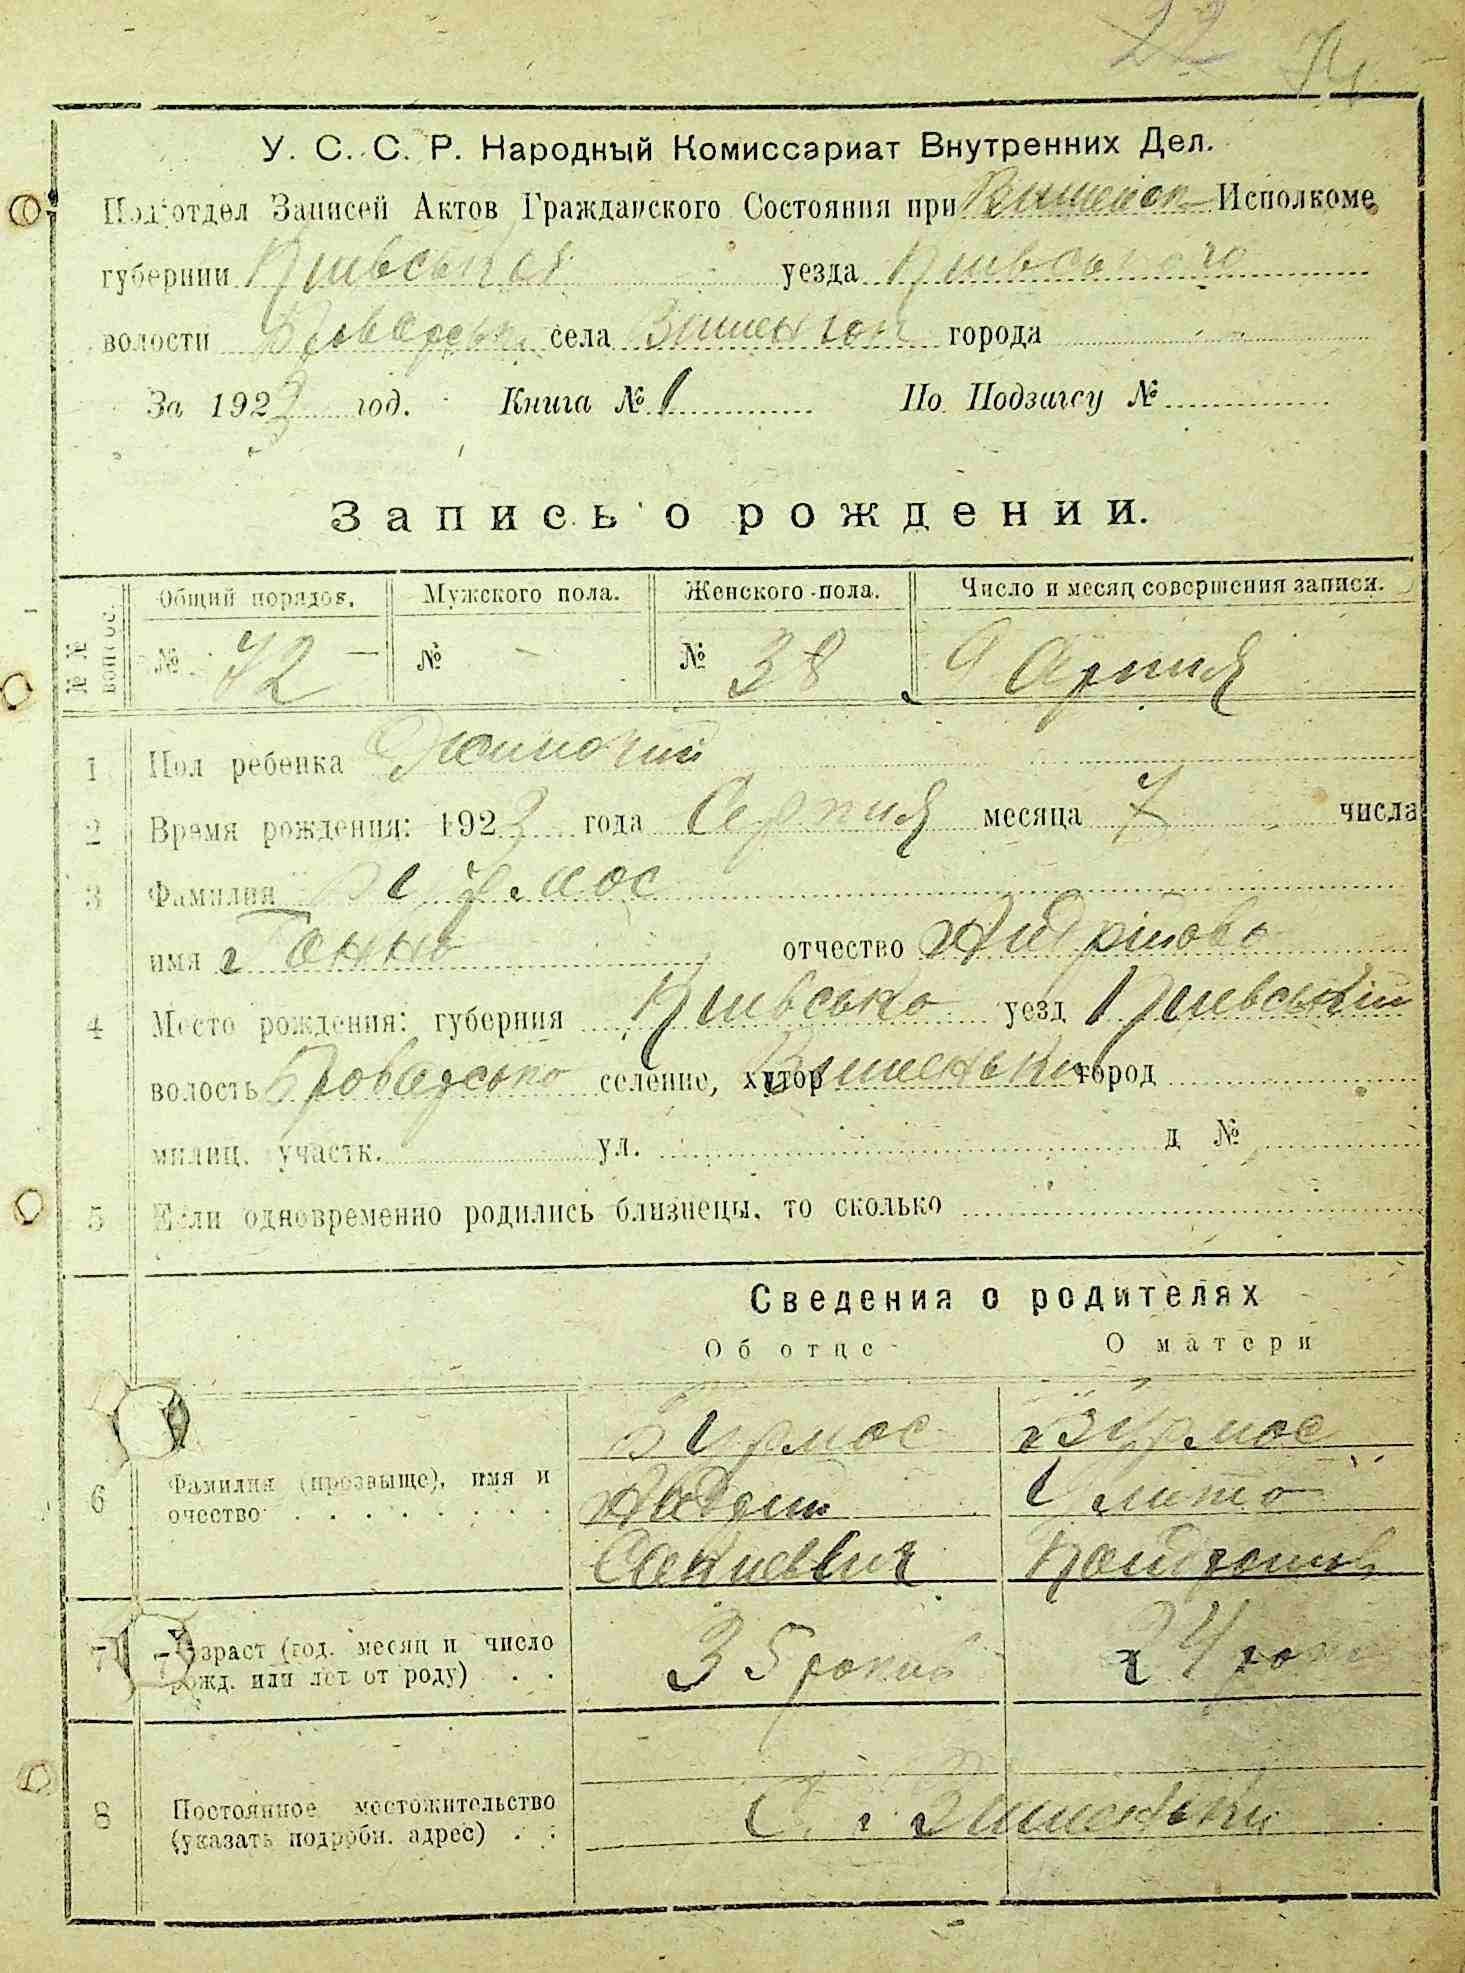 22
У. С. С. Р. Народный Комиссариат Внутренних Дел.
Под'отдел Записей Актов Гражданского Состояния при Вишенск Исполкоме
губернии Київська уезда Київського
волости Броварськ села Вишеньок города
За 1923 год. Книга № 1 По Подзагсу №
Запись о рождении.
№ № вопрос. Общий порядок. Мужского пола. Женского пола. Число и месяц совершения записи.
№ 72 – № - № 38 9 Серпня
1 Пол ребенка Жиночий
2 Время рождения: 1923 года Серпня месяца 7 числа
3 Фамилия Бурмос
имя Ганна отчество Андріівова
4 Место рождения: губерния Київська уезд Київський
волость Броварська селение, хутор Вишеньки город
милиц. участк. ул. д №
5 Если одновременно родились близнецы, то сколько
Сведения о родителях
Об отце О матери
6 Фамилия (прозвыще), имя и очество Бурмос Бурмос
Андрій Улита
Кондратов
7 Возраст (год. месяц и число рожд. или лет от роду) 35 років 24 роки
8 Постоянное местожительство (указать подробн. адрес) С. Вишеньки